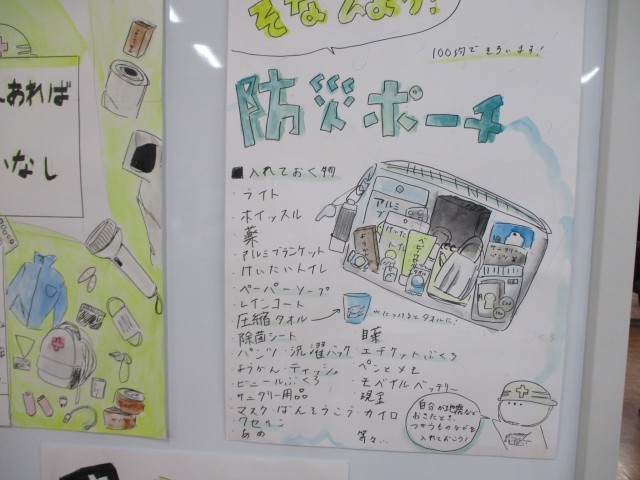 あれば
なし
そなえよう!
100均でそろいます!
防災ポーチ
■入れておく物
・ライト
・ホイッスル
・薬
・アルミブランケット
・けいたいトイレ
・ペーパーソープ
・レインコート
・圧縮タオル
水につけるとタオルに!
・除菌シート
・目薬
・パンツ・洗濯パック・エチケットぶくろ
・ようかん・ティッシュ
・ペンとメモ
・ビニールぶくろ
・モバイルバッテリー
・サニタリー用品
・現金
・マスク・ばんそうこう・カイロ
・ワセリン
・あめ
等々…
アルミ
けいたい
トイレ
自分が地震など
おきたとき、
つかうものなどを
入れておこう!